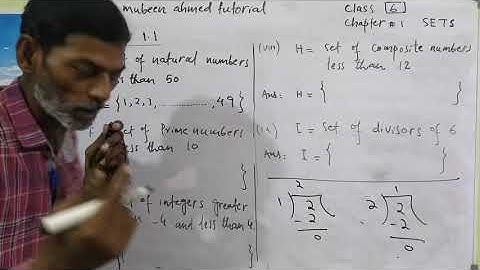 mubeen ahmed tutorial
class 6
chapter #1 SETS
1.1
of natural numbers
less than 50
= {1, 2, 3, ............, 49}
set of Prime numbers
less than 10
}
of integers greater
-4 and less than 4
}
(viii) H = set of composite numbers
less than 12
Ans: H = { }
(ix) I = set of divisors of 6
Ans: I = { }
2
1 2
-2
0
1
2 2
-2
0